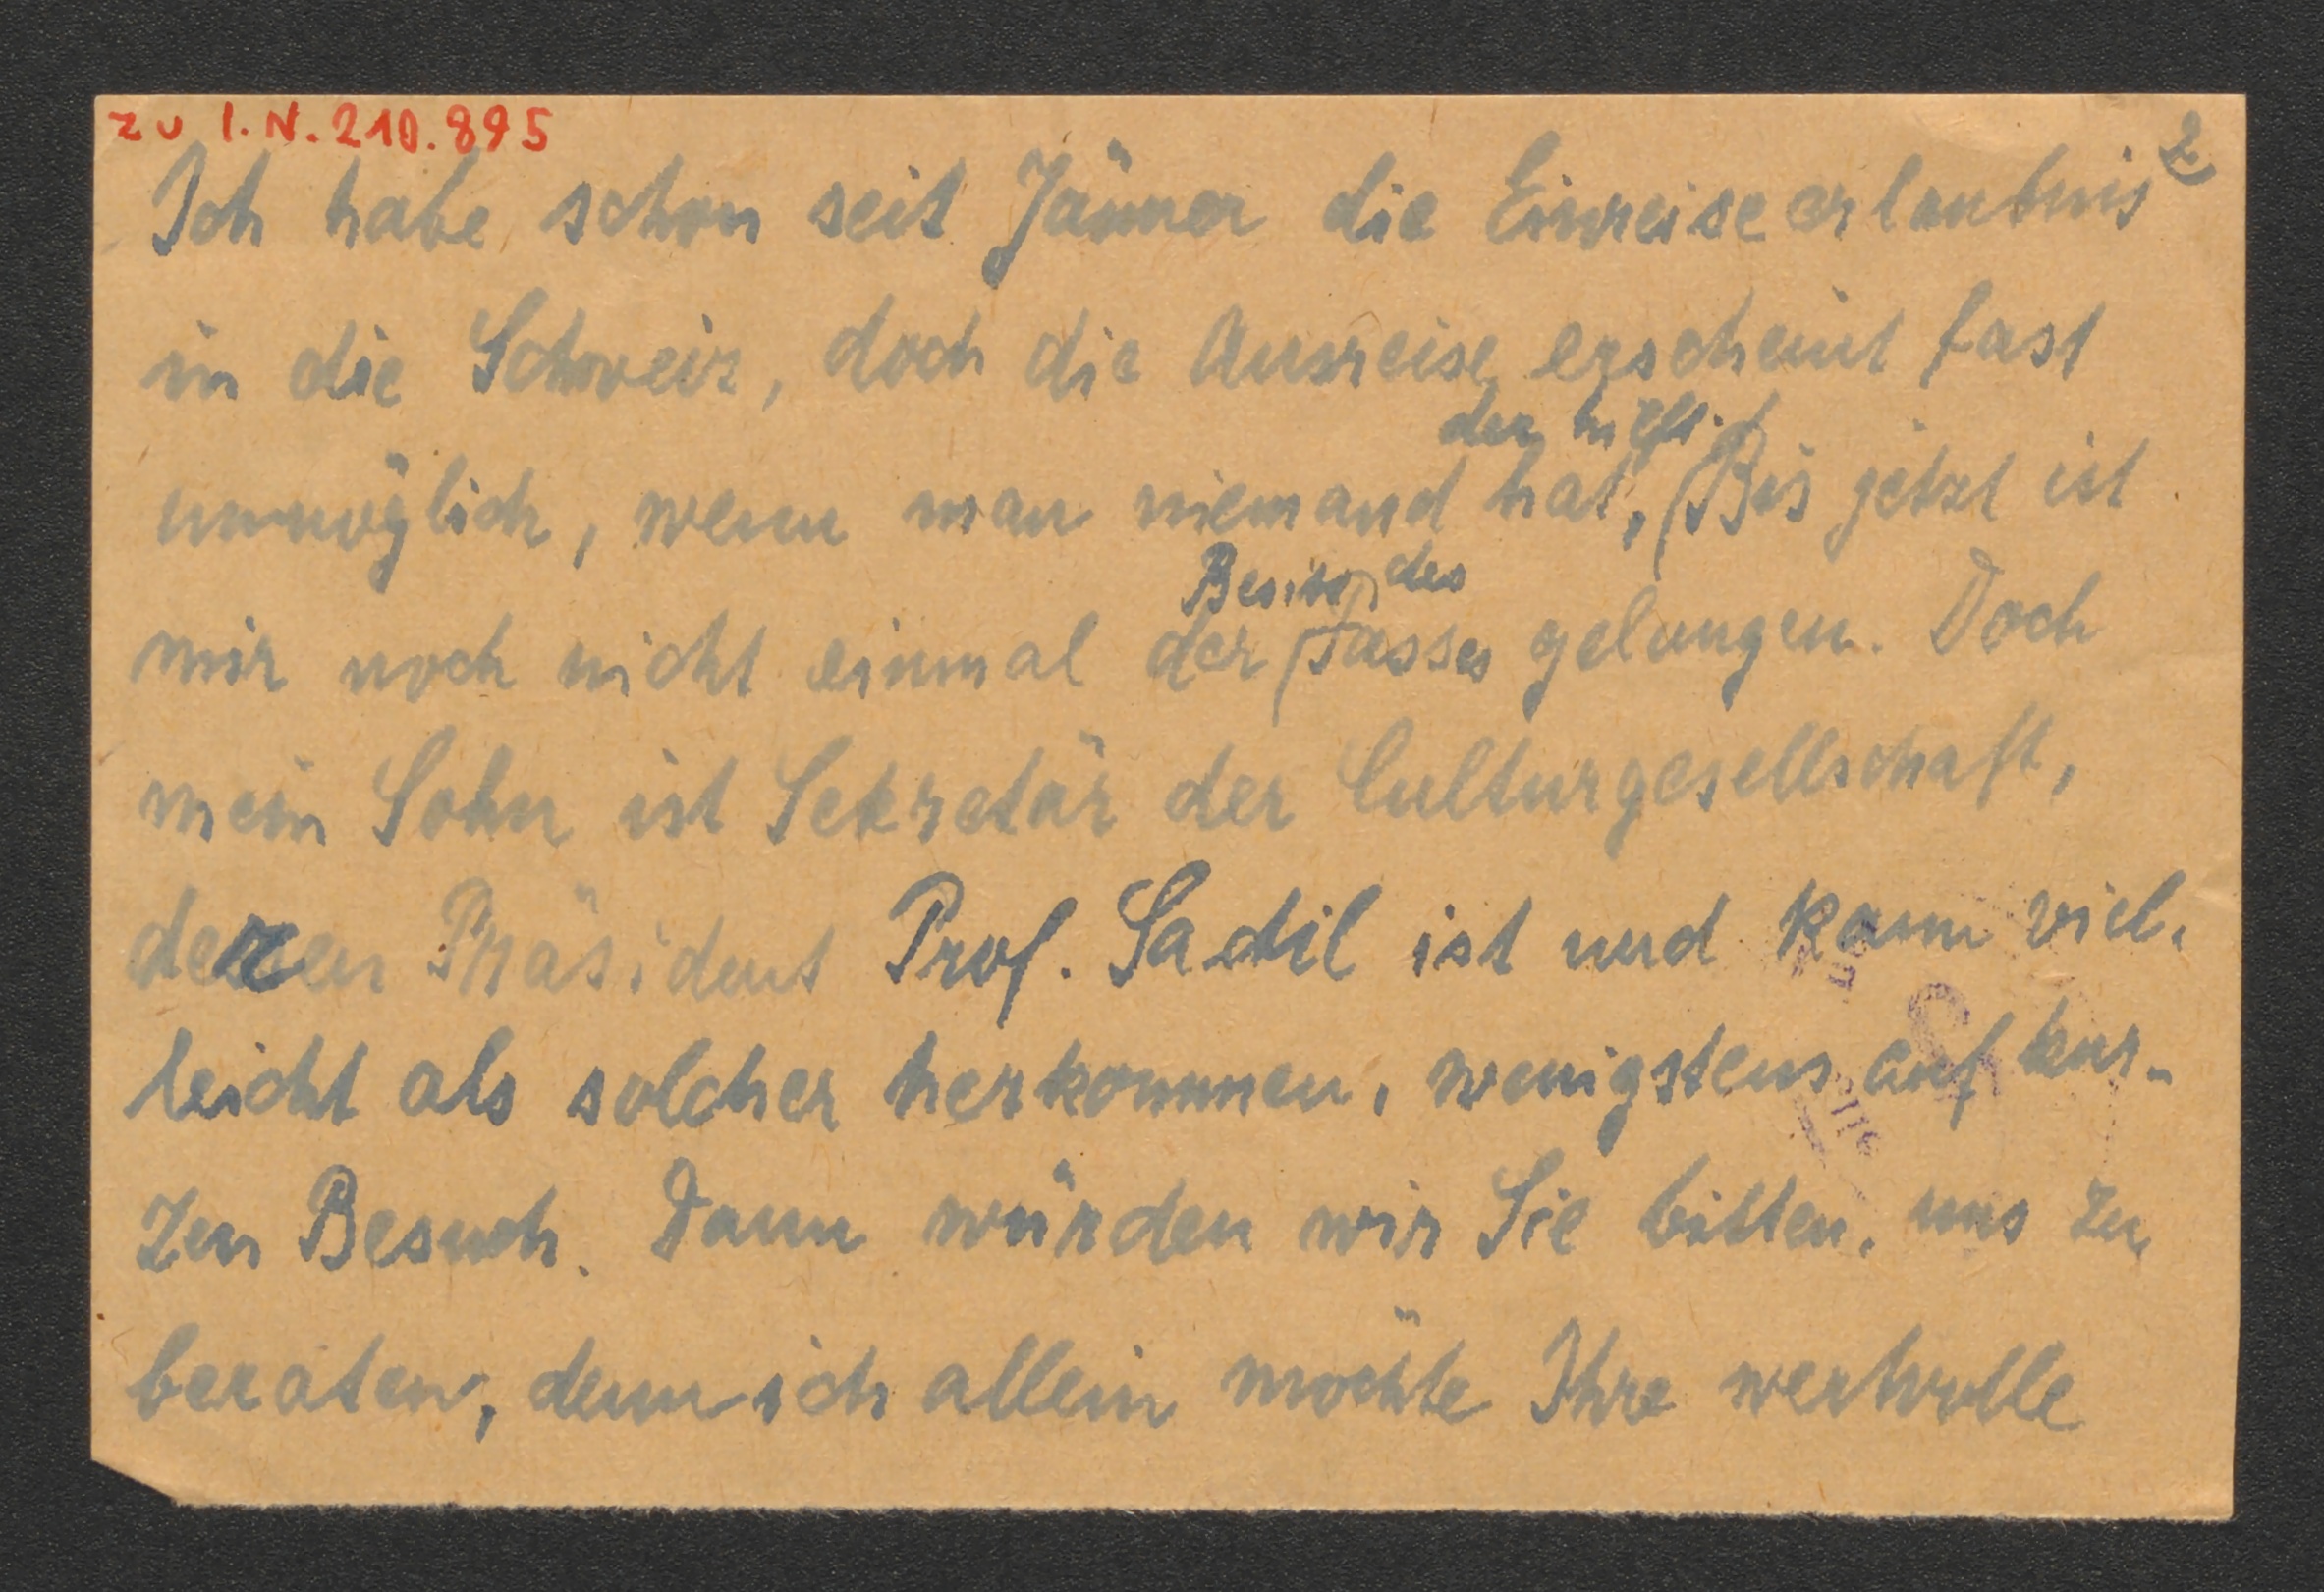 zu I.N. 210.895
2
Ich habe schon seit Jänner die Einreiseerlaubnis
in die Schweiz, doch die Ausreise erscheint fast
der hilft.
unmöglich, wenn man niemand hat, Bis jetzt ist
Besitz des
mir noch nicht einmal der Passes gelungen. Doch
mein Sohn ist Sekretär der Culturgesellschaft,
deren Präsident Prof. Sadil ist und kann viel-
leicht als solcher herkommen, wenigstens auf kur-
zen Besuch. Dann würden wir Sie bitten, uns zu
beraten, denn ich allein möchte Ihre wertvolle